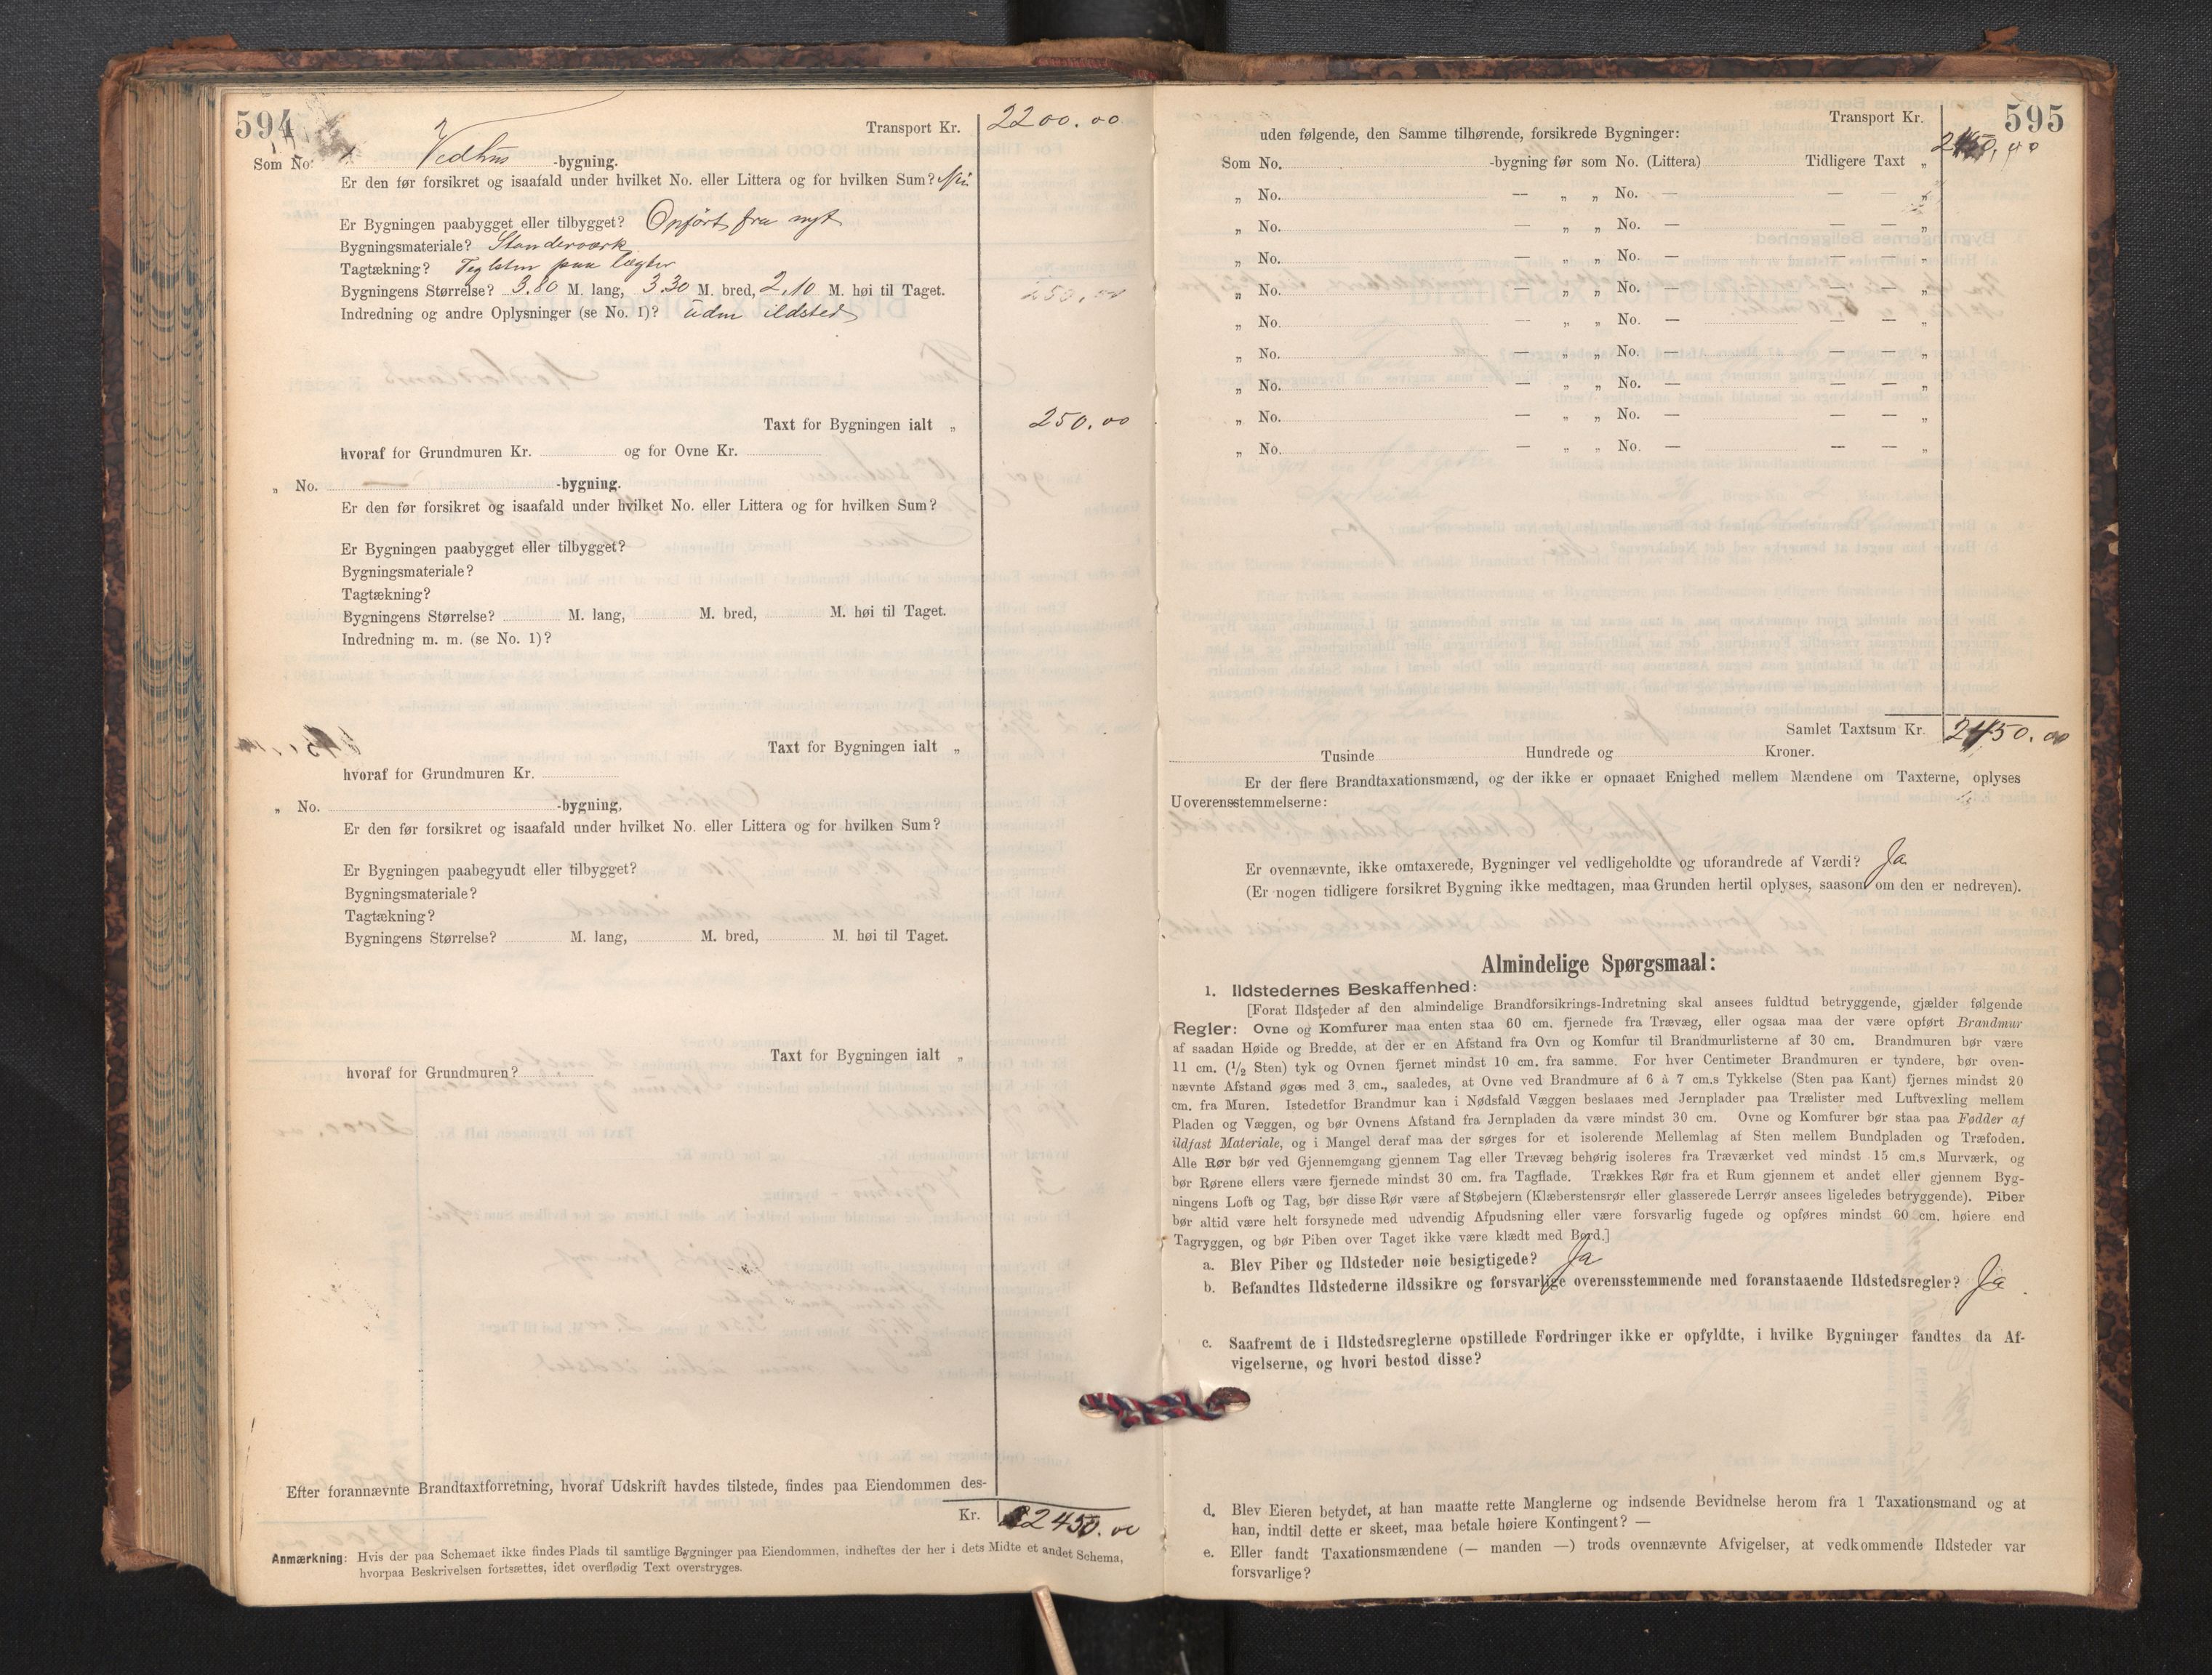 594
Transport Kr. 2200.00
Som No. Vedhus -bygning.
Er den før forsikret og isaafald under hvilket No. eller Littera og for hvilken Sum? Nei
Er Bygningen paabygget eller tilbygget? Opført fra nyt
Bygningsmateriale? Standeværk
Tagtækning? Teglsten paa lægter
Bygningens Størrelse? 3.80 M. lang, 3.30 M. bred, 2.10 M. høi til Taget. 250.00
Indredning og andre Oplysninger (se No. 1)? uden ildsted
Taxt for Bygningen ialt „ 250.00
hvoraf for Grundmuren Kr. og for Ovne Kr.
„ No. -bygning.
Er den før forsikret og isaafald under hvilket No. eller Littera og for hvilken Sum?
Er Bygningen paabygget eller tilbygget?
Bygningsmateriale?
Tagtækning?
Bygningens Størrelse? M. lang, M. bred, M. høi til Taget.
Indredning m. m. (se No. 1)?
Taxt for Bygningen ialt „
hvoraf for Grundmuren Kr.
„ No. -bygning,
Er den før forsikret og isaafald under hvilket No. eller Littera og for hvilken Sum?
Er Bygningen paabegyudt eller tilbygget?
Bygningsmateriale?
Tagtækning?
Bygningens Størrelse? M. lang, M. bred, M. høi til Taget.
Taxt for Bygningen ialt „
hvoraf for Grundmuren?
Efter forannævnte Brandtaxtforretning, hvoraf Udskrift havdes tilstede, findes paa Eiendommen des-
Kr. 2450.00
Anmærkning: Hvis der paa Schemaet ikke findes Plads til samtlige Bygninger paa Eiendommen, indheftes der her i dets Midte et andet Schema,
hvorpaa Beskrivelsen fortsættes, idet overflødig Text overstryges.
595
Transport Kr. 2450,00
uden følgende, den Samme tilhørende, forsikrede Bygninger:
Som No. -bygning før som No. (Littera) Tidligere Taxt „
„ No. — „ „ No. — — — „
„ No. — „ „ No. — — — „
„ No. — „ „ No. — — — „
„ No. — „ „ No. — — — „
„ No. — „ „ No. — — — „
„ No. — „ „ No. — — — „
„ No. — „ „ No. — — — „
„ No. — „ „ No. — — — „
„ No. — „ „ No. — — — „
Samlet Taxtsum Kr. 2450.00
Tusinde Hundrede og Kroner.
Er der flere Brandtaxationsmænd, og der ikke er opnaaet Enighed mellem Mændene om Taxterne, oplyses
Uoverensstemmelserne:
Er ovennævnte, ikke omtaxerede, Bygninger vel vedligeholdte og uforandrede af Værdi? Ja
(Er nogen tidligere forsikret Bygning ikke medtagen, maa Grunden hertil oplyses, saasom om den er nedreven).
Almindelige Spørgsmaal:
1. Ildstedernes Beskaffenhed:
[Forat Ildsteder af den almindelige Brandforsikrings-Indretning skal ansees fuldtud betryggende, gjælder følgende
Regler: Ovne og Komfurer maa enten staa 60 cm. fjernede fra Trævæg, eller ogsaa maa der være opført Brandmur
af saadan Høide og Bredde, at der er en Afstand fra Ovn og Komfur til Brandmurlisterne af 30 cm. Brandmuren bør være
11 cm. (1/2 Sten) tyk og Ovnen fjernet mindst 10 cm. fra samme. For hver Centimeter Brandmuren er tyndere, bør oven-
nævnte Afstand øges med 3 cm., saaledes, at Ovne ved Brandmure af 6 à 7 cm.s Tykkelse (Sten paa Kant) fjernes mindst 20
cm. fra Muren. Istedetfor Brandmur kan i Nødsfald Væggen beslaaes med Jernplader paa Trælister med Luftvexling mellem
Pladen og Væggen, og bør Ovnens Afstand fra Jernpladen da være mindst 30 cm. Ovne og Komfurer bør staa paa Fødder af
ildfast Materiale, og i Mangel deraf maa der sørges for et isolerende Mellemlag af Sten mellem Bundpladen og Træfoden.
Alle Rør bør ved Gjennemgang gjennem Tag eller Trævæg behørig isoleres fra Træværket ved mindst 15 cm.s Murværk, og
bør Rørene ellers være fjernede mindst 30 cm. fra Tagflade. Trækkes Rør fra et Rum gjennem et andet eller gjennem Byg-
ningens Loft og Tag, bør disse Rør være af Støbejern (Klæberstensrør eller glasserede Lerrør ansees ligeledes betryggende). Piber
bør altid være helt forsynede med udvendig Afpudsning eller være forsvarlig fugede og opføres mindst 60 cm. høiere end
Tagryggen, og bør Piben over Taget ikke være klædt med Bord.]
a. Blev Piber og Ildsteder nøie besigtigede? Ja
b. Befandtes Ildstederne ildssikre og forsvarlige overensstemmende med foranstaaende Ildstedsregler? Ja
c. Saafremt de i Ildstedsreglerne opstillede Fordringer ikke er opfyldte, i hvilke Bygninger fandtes da Af-
vigelserne, og hvori bestod disse?
d. Blev Eieren betydet, at han maatte rette Manglerne og indsende Bevidnelse herom fra 1 Taxationsmand og at
han, indtil dette er skeet, maa betale høiere Kontingent? —
e. Eller fandt Taxationsmændene (— manden —) trods ovennævnte Afvigelser, at vedkommende Ildsteder var
forsvarlige?